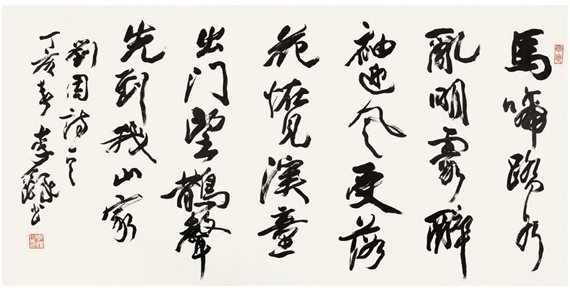 馬啼踏水
亂明霞醉
袖迎風受落
花怪見溪童
出門望鵲聲
先到我山家
劉因詩一首
丁亥春李鐸書